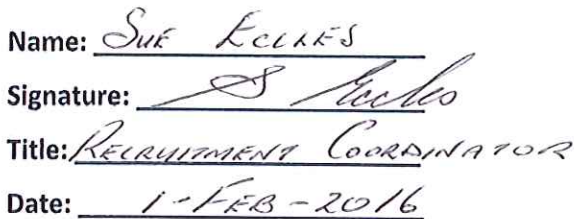 Name: Sue Eccles
Signature: S Eccles
Title: Recruitment Coordinator
Date: 1-Feb-2016